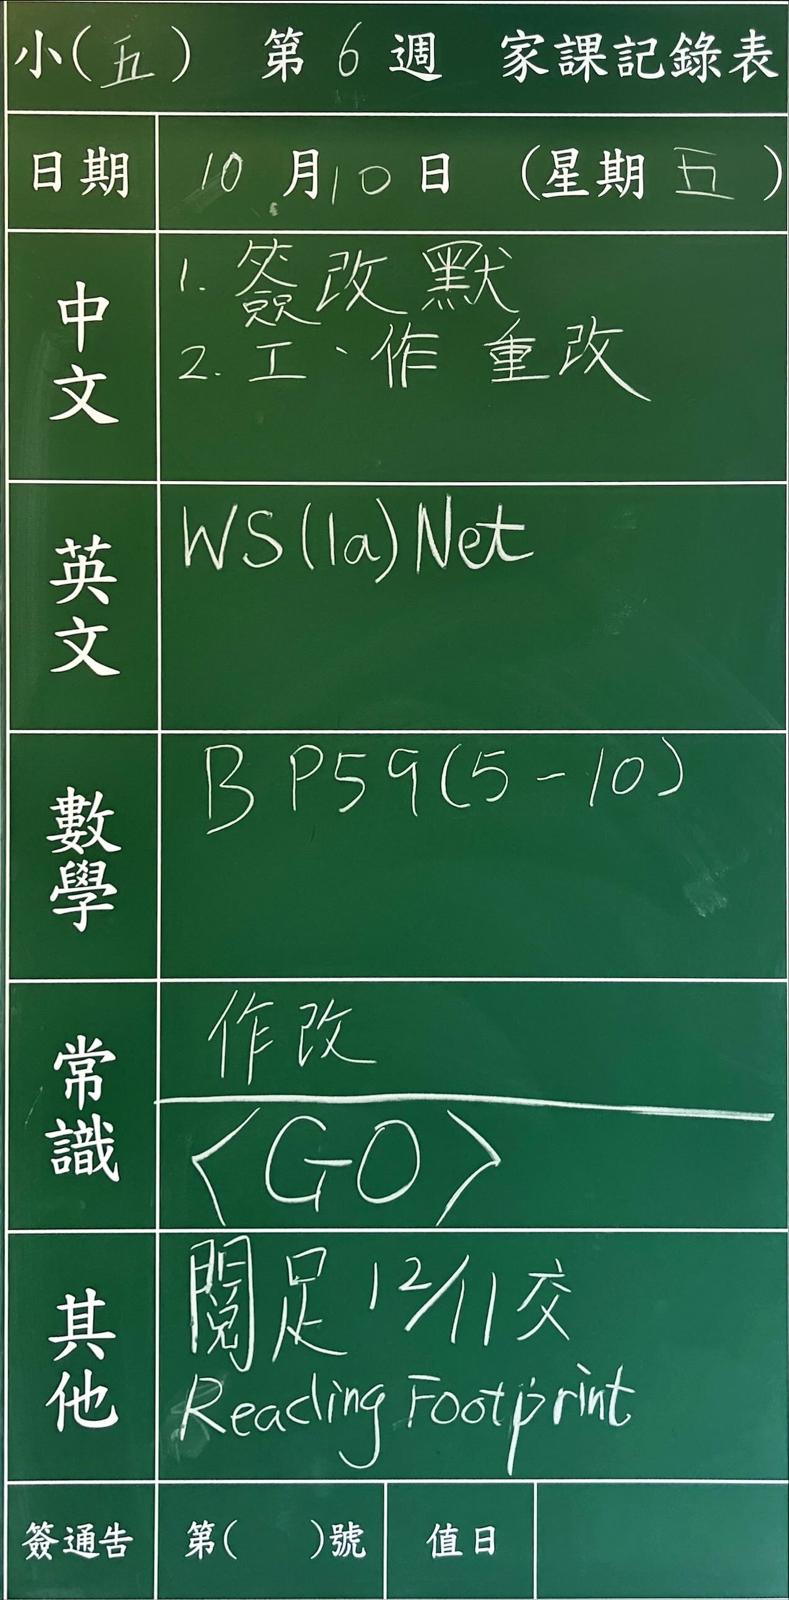 小(五) 第6週 家課記錄表
日期 10月10日 (星期五)
中文
1. 簽改默
2. 工、作 重改
英文
WS(1a)Net
數學
B P59(5-10)
常識
作改
<GO>
其他
閱足 12/11交
Reading Footprint
簽通告 第( )號 值日